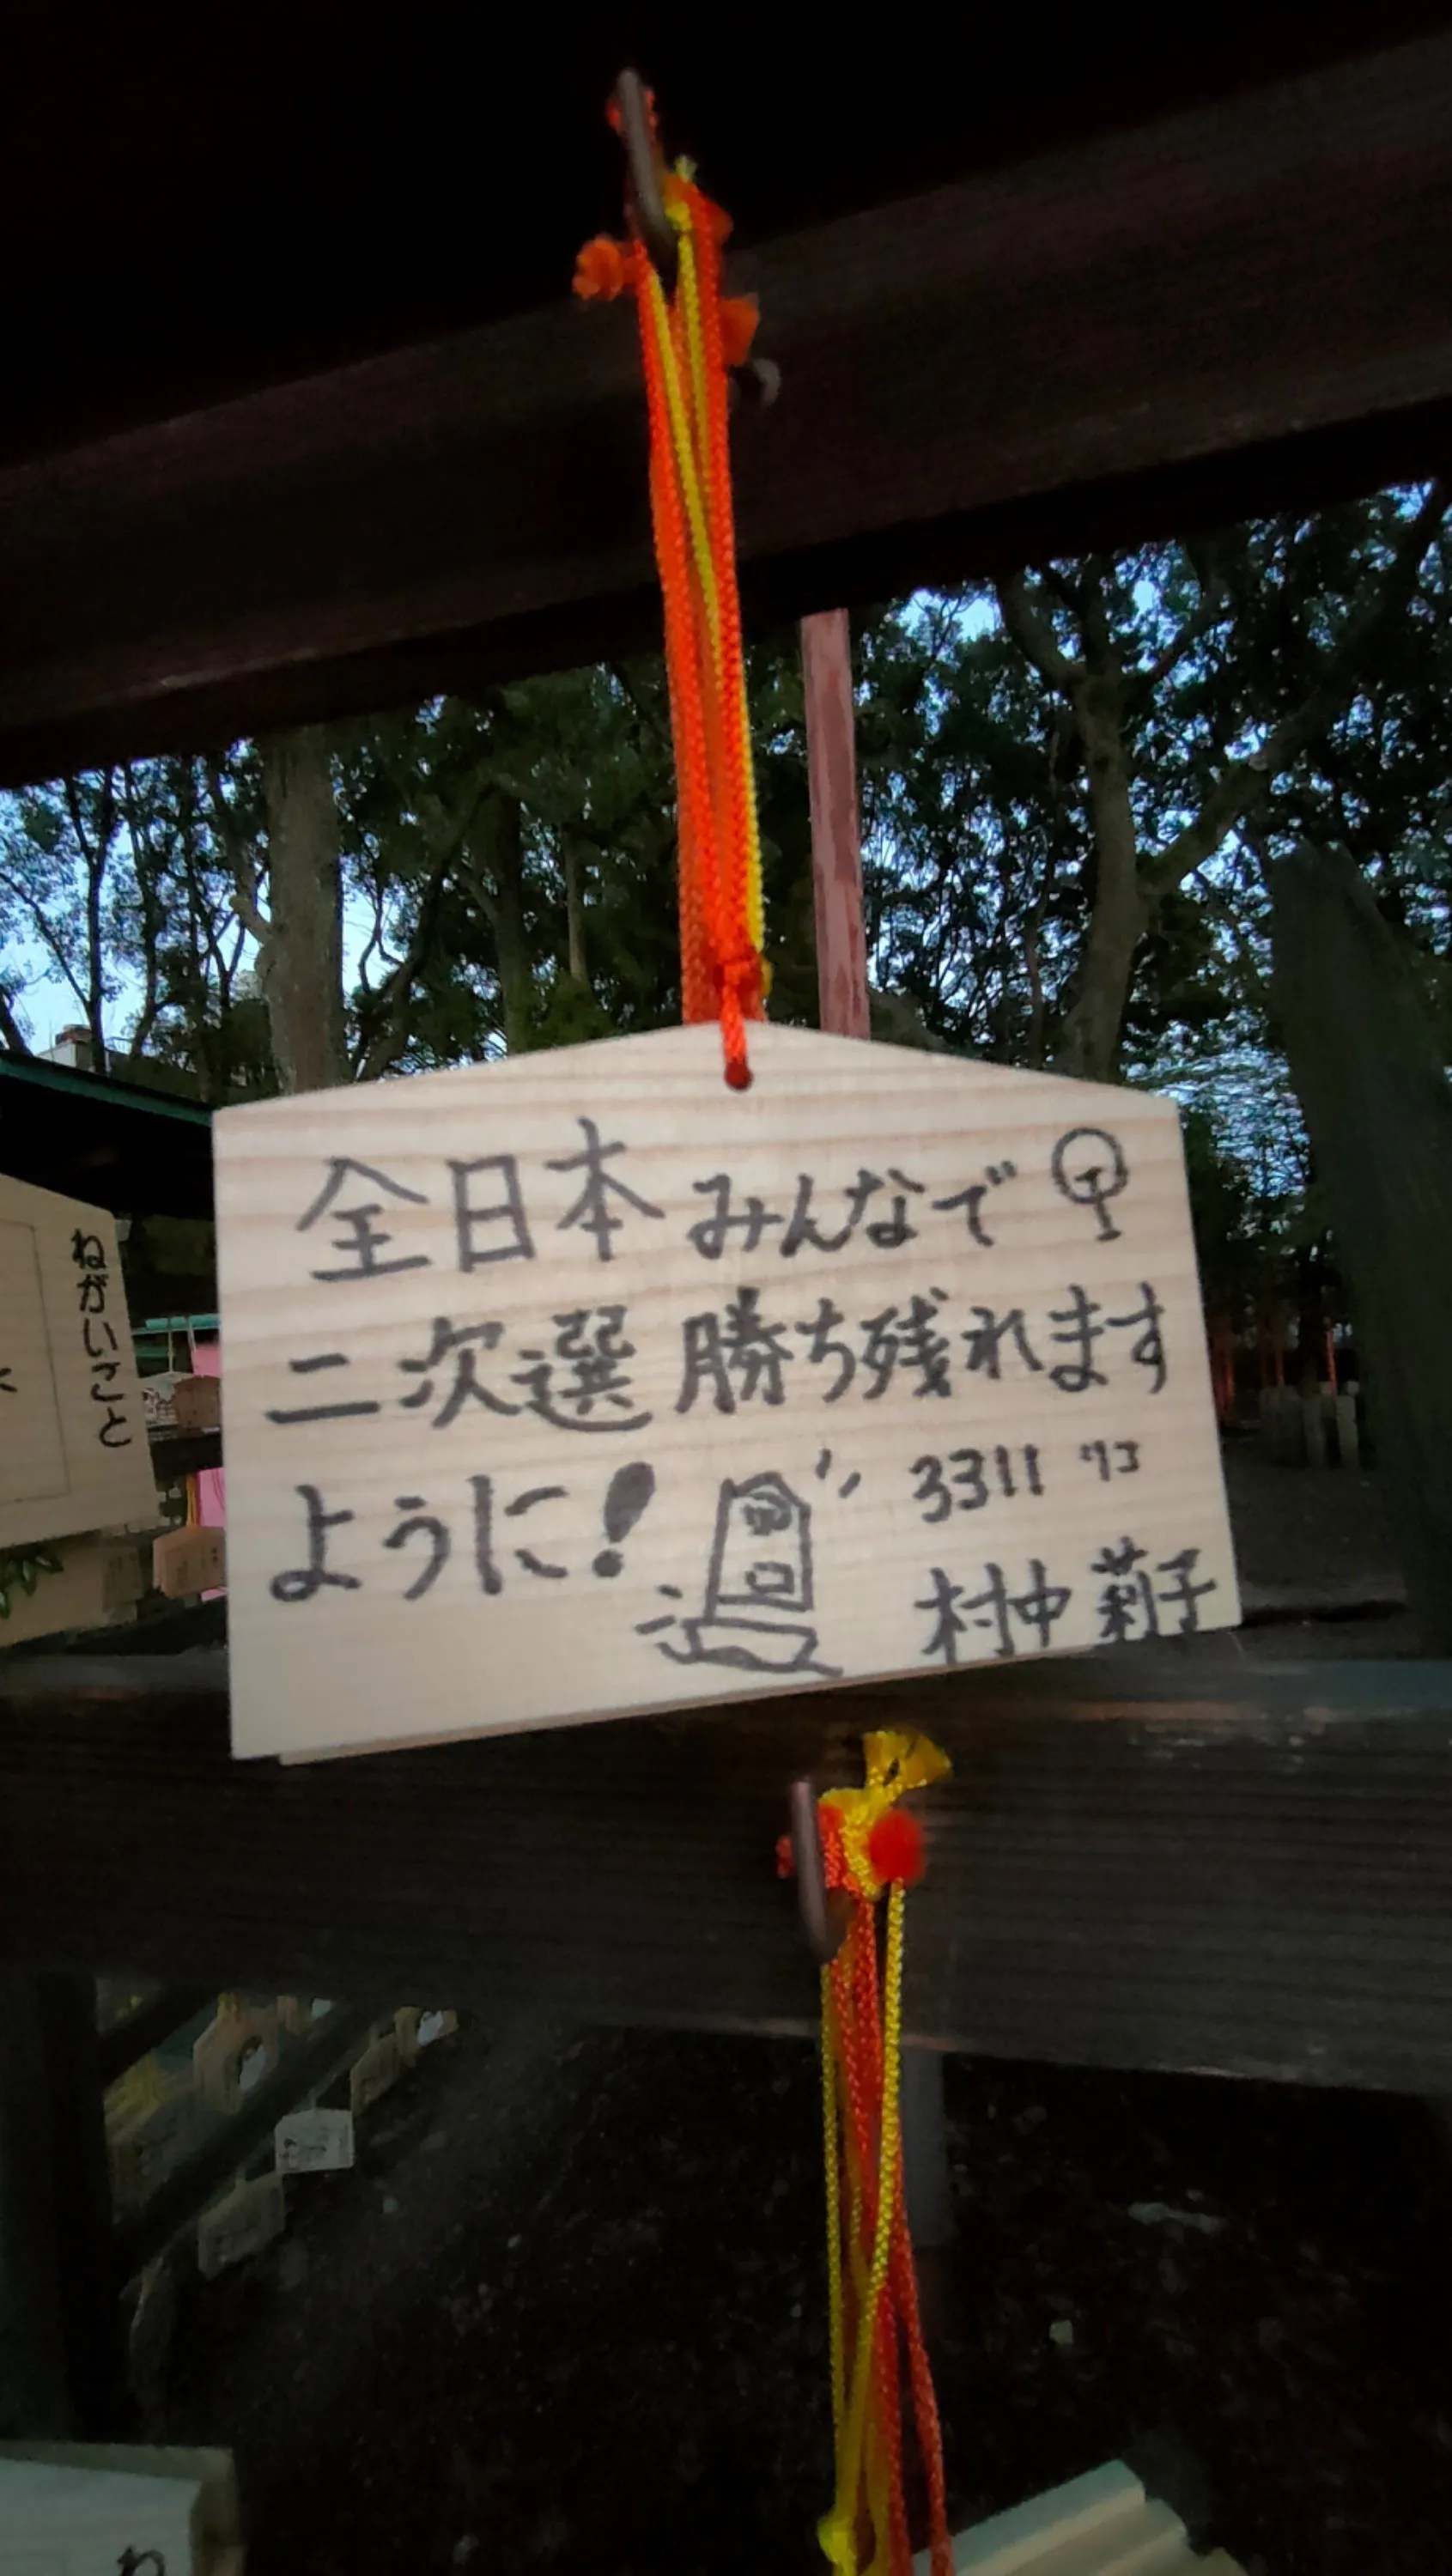 全日本 みんなで
二次選 勝ち残れます
ように!
3311 ワコ
村中 莉子
ねがいこと